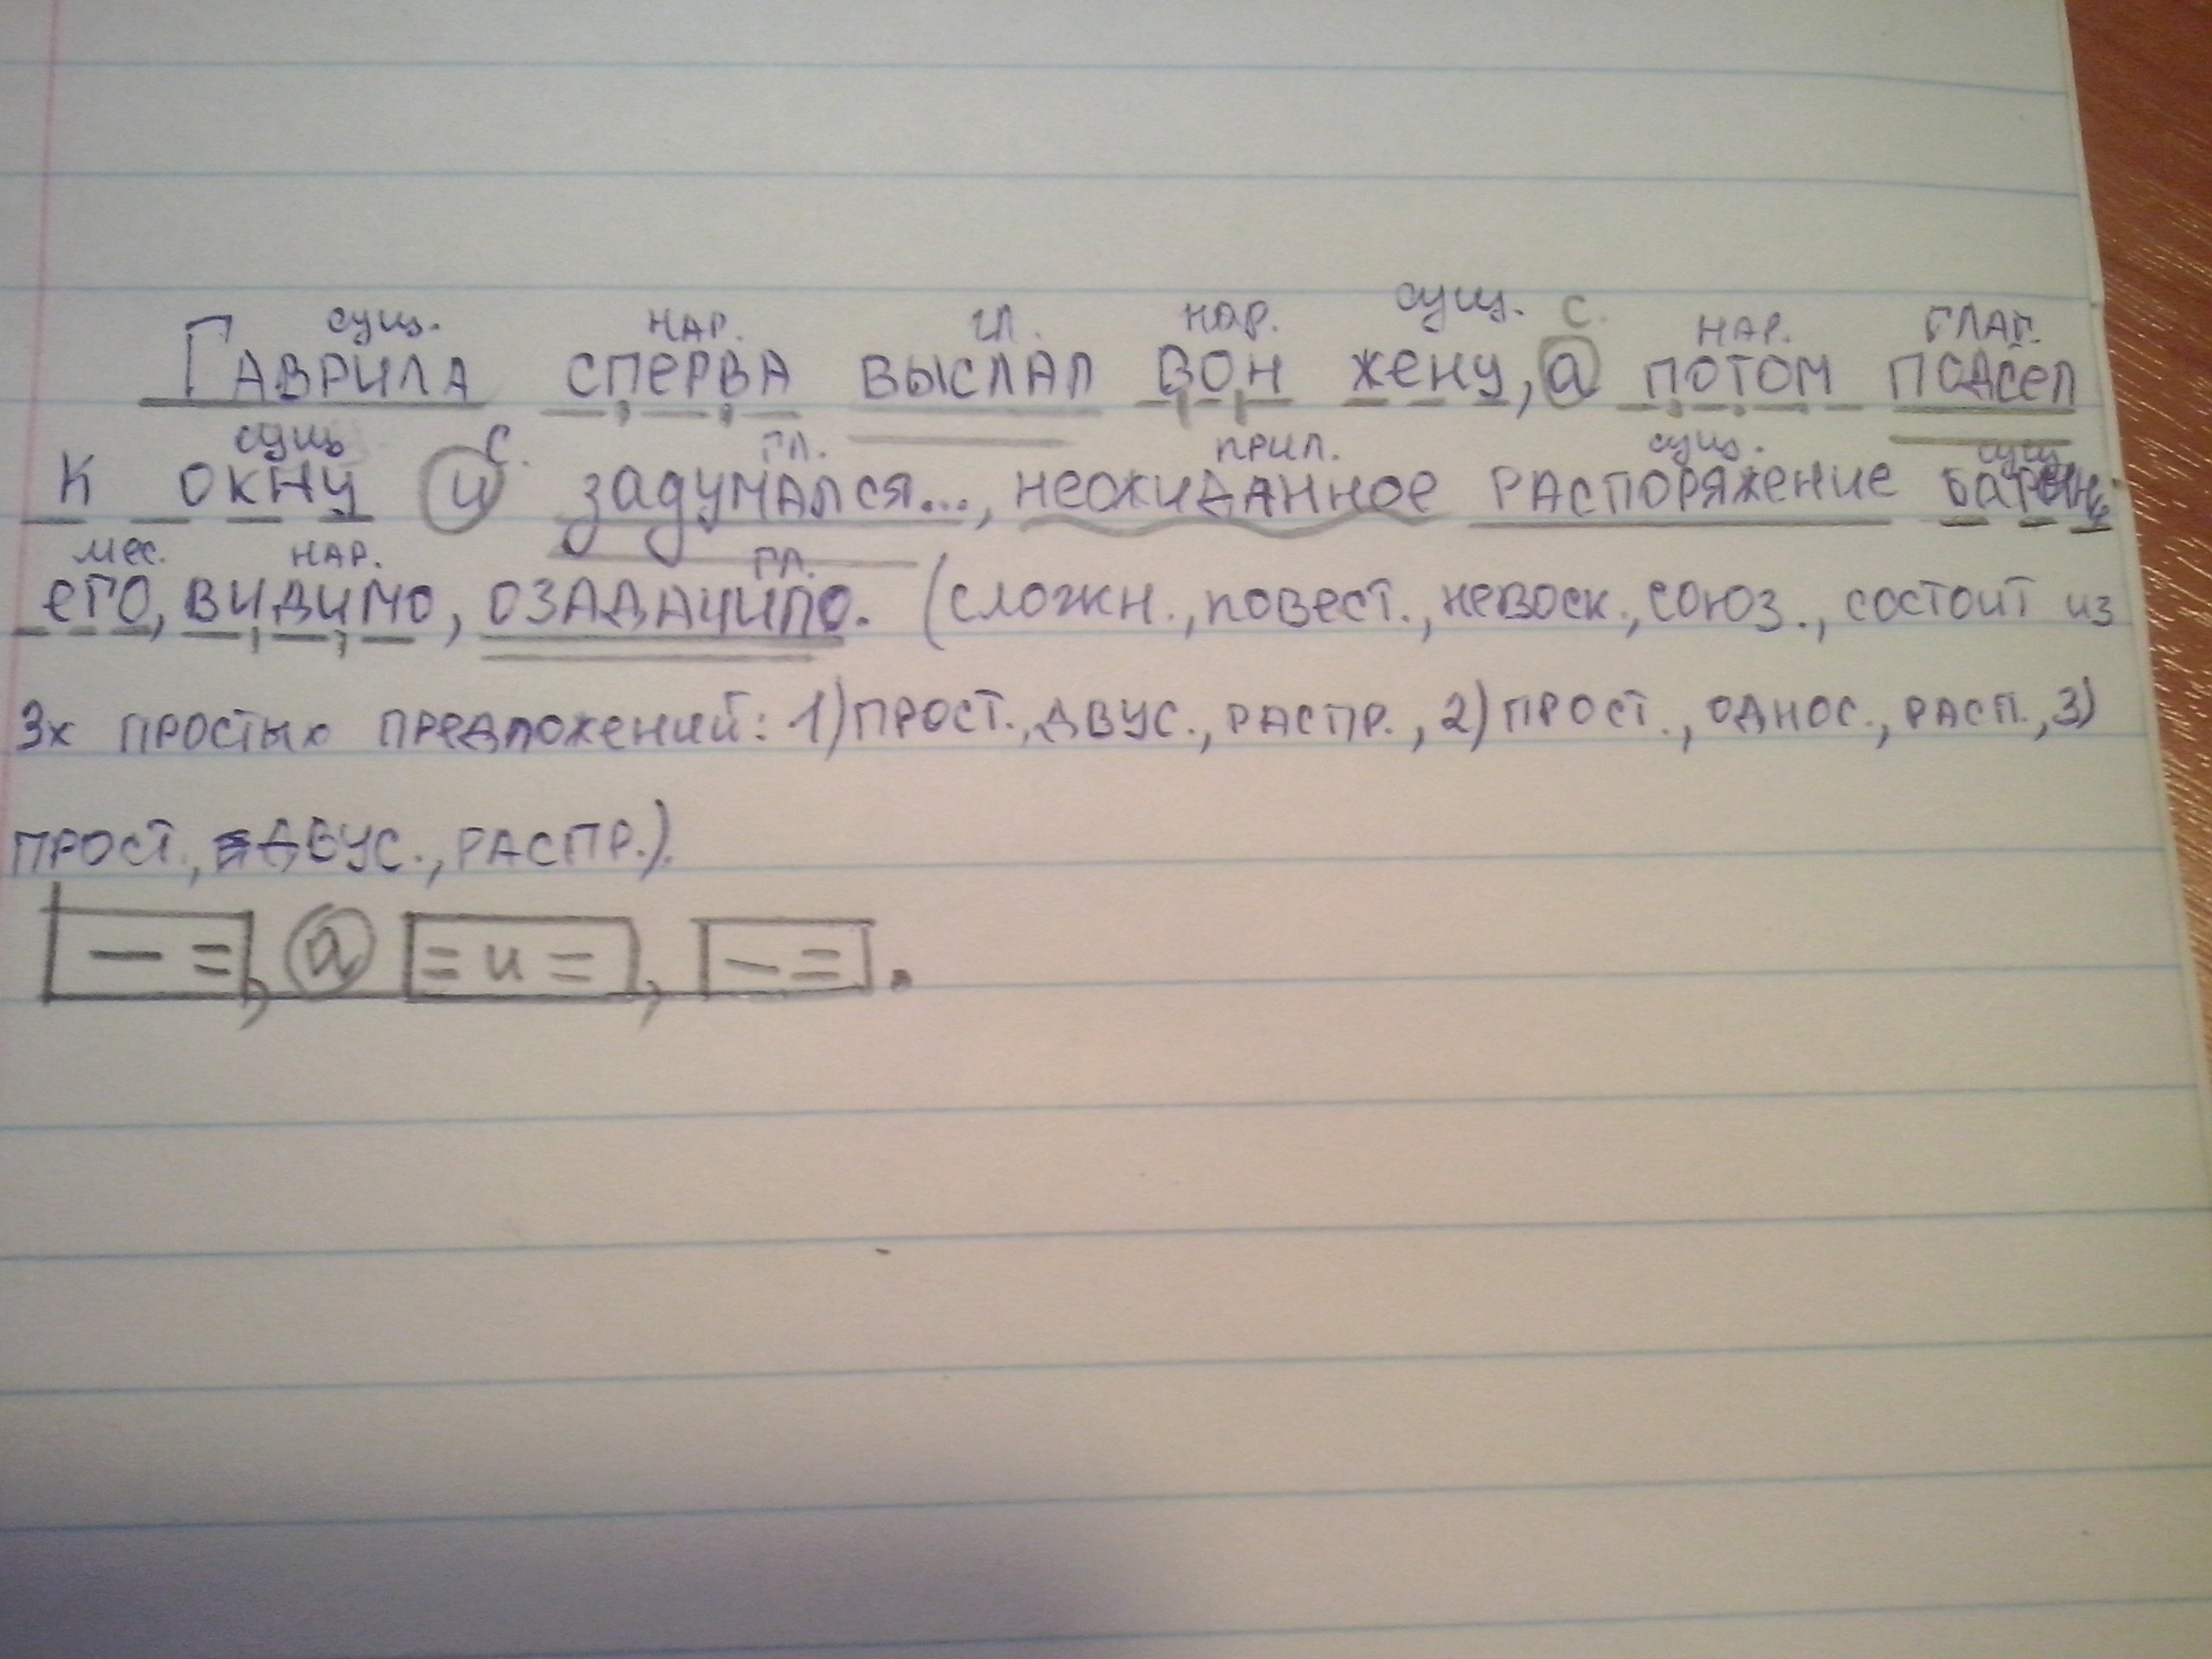 сущ. нар. гл. нар. сущ. с. нар. глаг.
Гаврила сперва выслал вон жену, а потом подсел
сущ с. гл. прил. сущ. сущ
к окну и задумался..., неожиданное распоряжение барыни
мес. нар. гл.
его, видимо, озадачило. (сложн., повест., невоск., союз., состоит из
3х простых предложений: 1) прост., двус., распр., 2) прост., однос., расп., 3)
прост., двус., распр.).
— =, а = и =, — = .